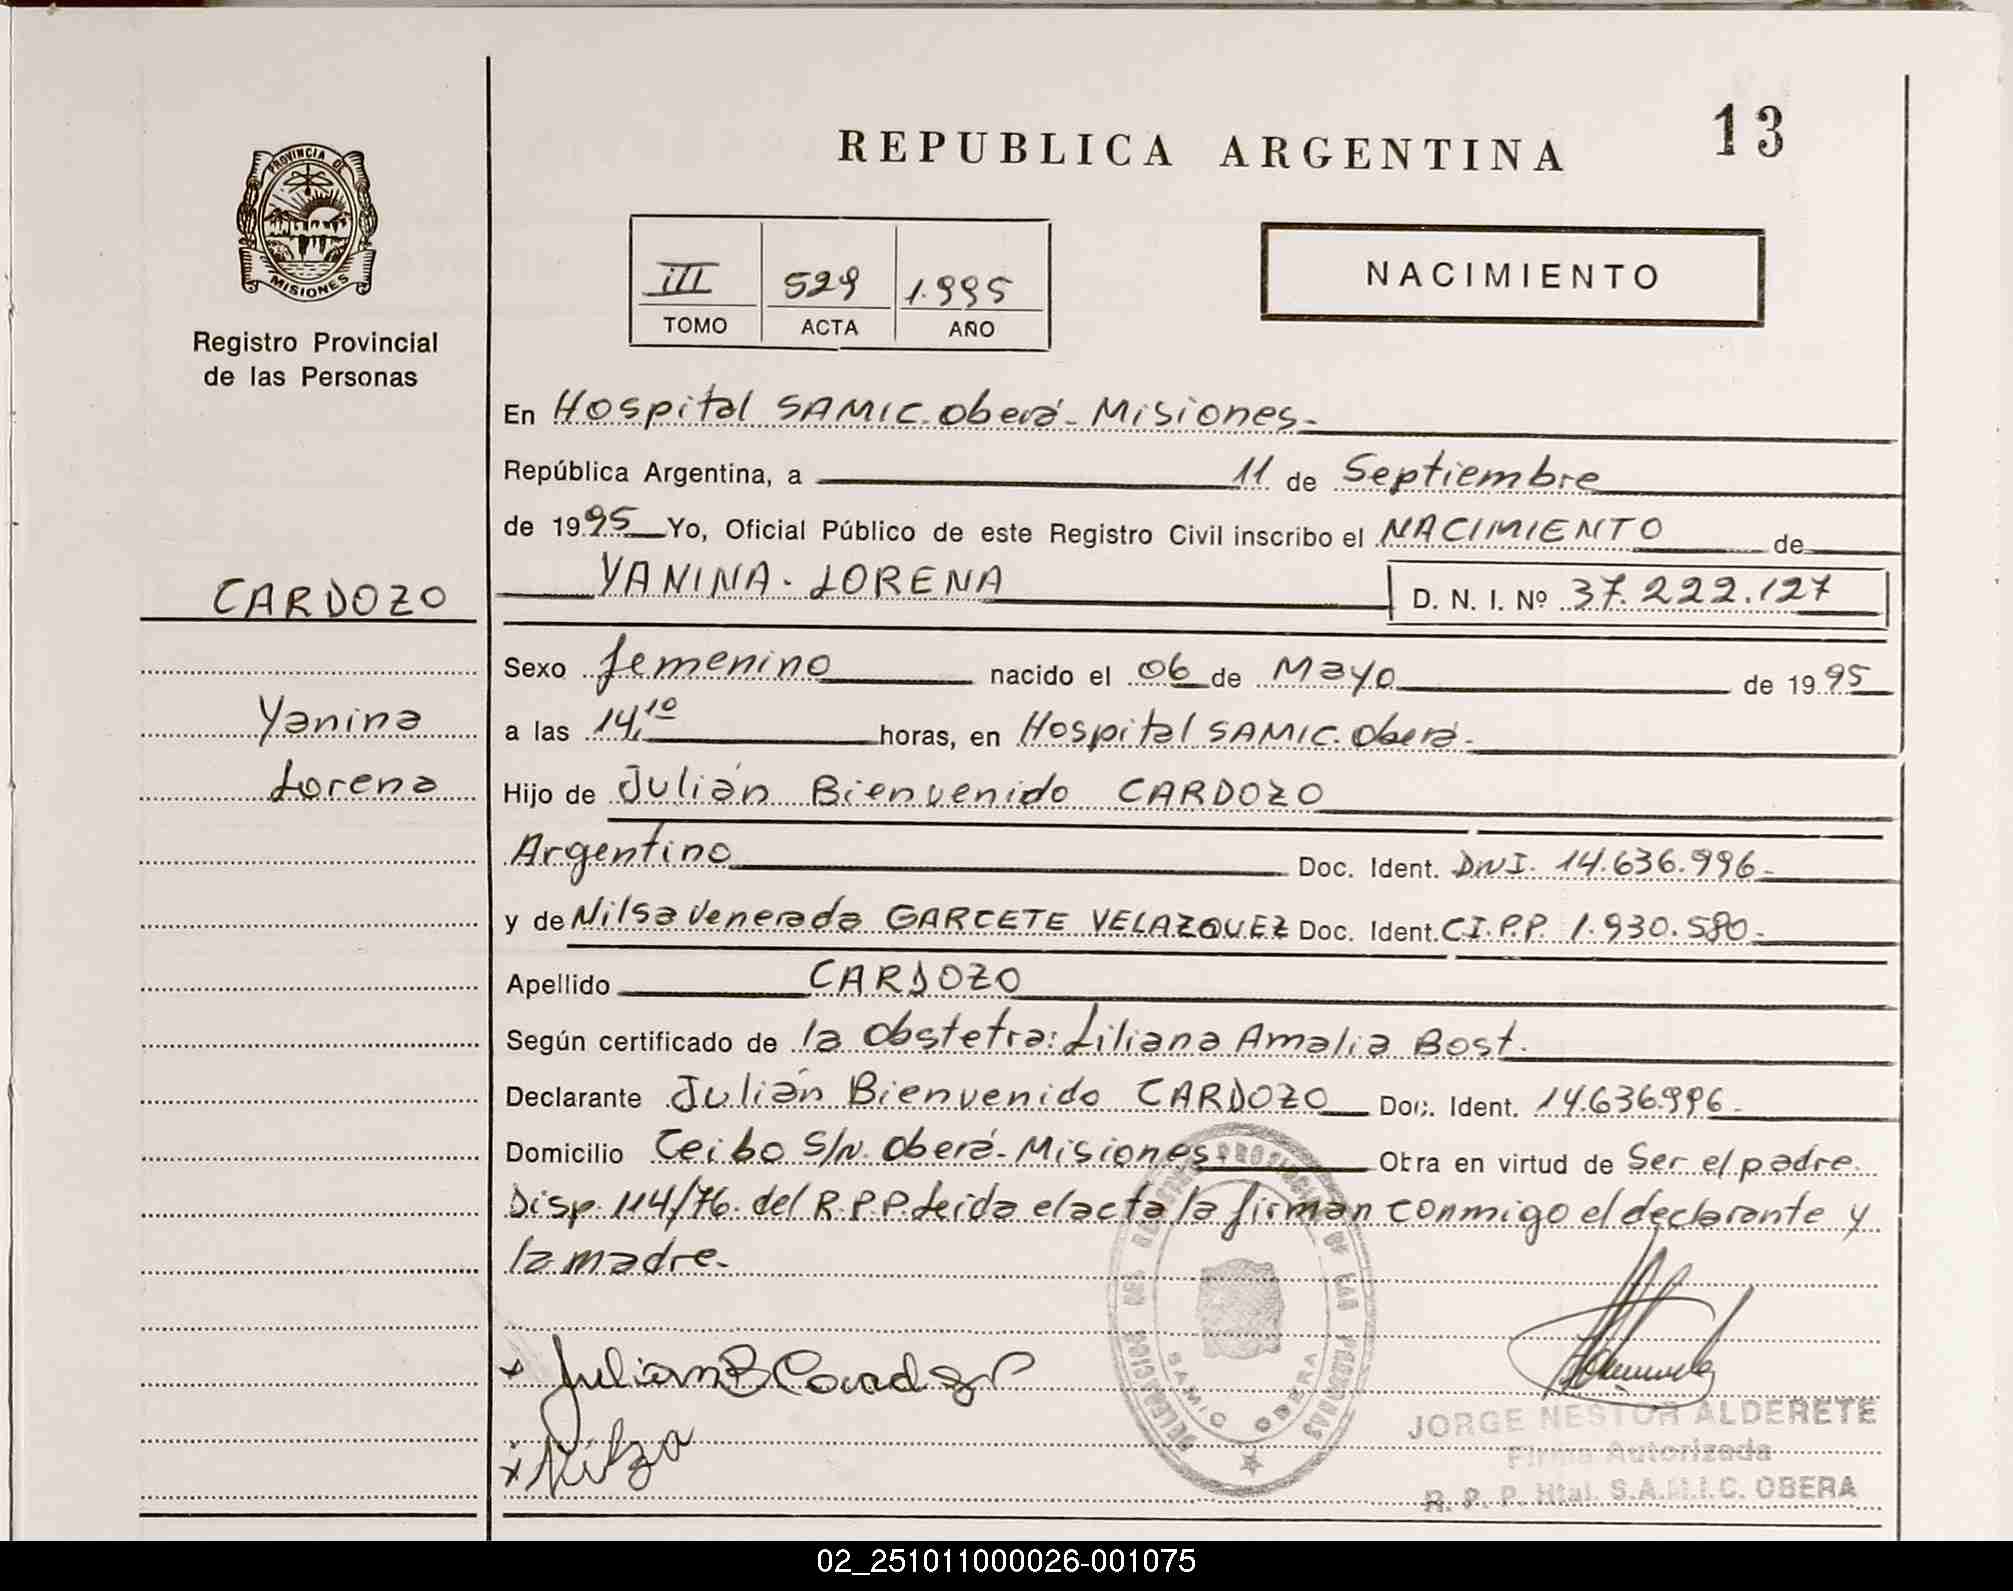 REPUBLICA ARGENTINA
13
PROVINCIA DE
MISIONES
Registro Provincial
de las Personas
III 529 1.995
TOMO ACTA AÑO
NACIMIENTO
En Hospital SAMIC. Oberá - Misiones -
República Argentina, a 11 de Septiembre
de 1995 Yo, Oficial Público de este Registro Civil inscribo el NACIMIENTO de
CARDOZO
YANINA - LORENA D. N. I. Nº 37.222.127
Sexo femenino nacido el 06 de Mayo de 1995
Yanina
a las 14,10 horas, en Hospital SAMIC. Oberá -
Lorena
Hijo de Julián Bienvenido CARDOZO
Argentino Doc. Ident. DNI. 14.636.996 -
y de Nilsa Venerada GARCETE VELAZQUEZ Doc. Ident. C.I.P.P. 1.930.580 -
Apellido CARDOZO
Según certificado de la Obstetra: Liliana Amalia Bost.
Declarante Julián Bienvenido CARDOZO Doc. Ident. 14.636.996 -
Domicilio Ceibo S/N. Oberá - Misiones Obra en virtud de Ser el padre
Disp. 114/76. del R.P.P. Leida el acta la firman conmigo el declarante y
la madre -
DELEGACION DEL REGISTRO PROVINCIAL DE LAS PERSONAS
SAMIC OBERA
x Julian B Cardozo
x Nilza
JORGE NESTOR ALDERETE
Firma Autorizada
R. P. P. Htal. S.A.M.I.C. OBERA
02_251011000026-001075